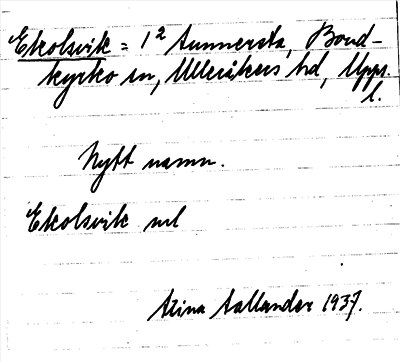 Ekolsvik = 1² Sunnersta, Bond-
kyrko sn, Ulleråkers hd, Uppl.
l.
Nytt namn.
Ekolsvik ml
Stina Sallander 1937.